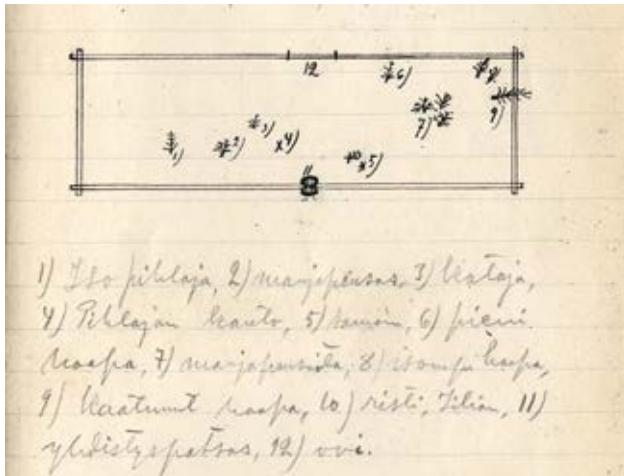 12
6)
8
3)
4)
7)
9)
1)
2)
11
10
5)
1) Iso pihlaja, 2) marjapensas, 3) kataja,
4) Pihlajan kanto, 5) samoin, 6) pieni
haapa, 7) marjapensaita, 8) isompi haapa,
9) kaatunut haapa, 10) risti, 11)
yhdistyspatsas, 12) ovi.